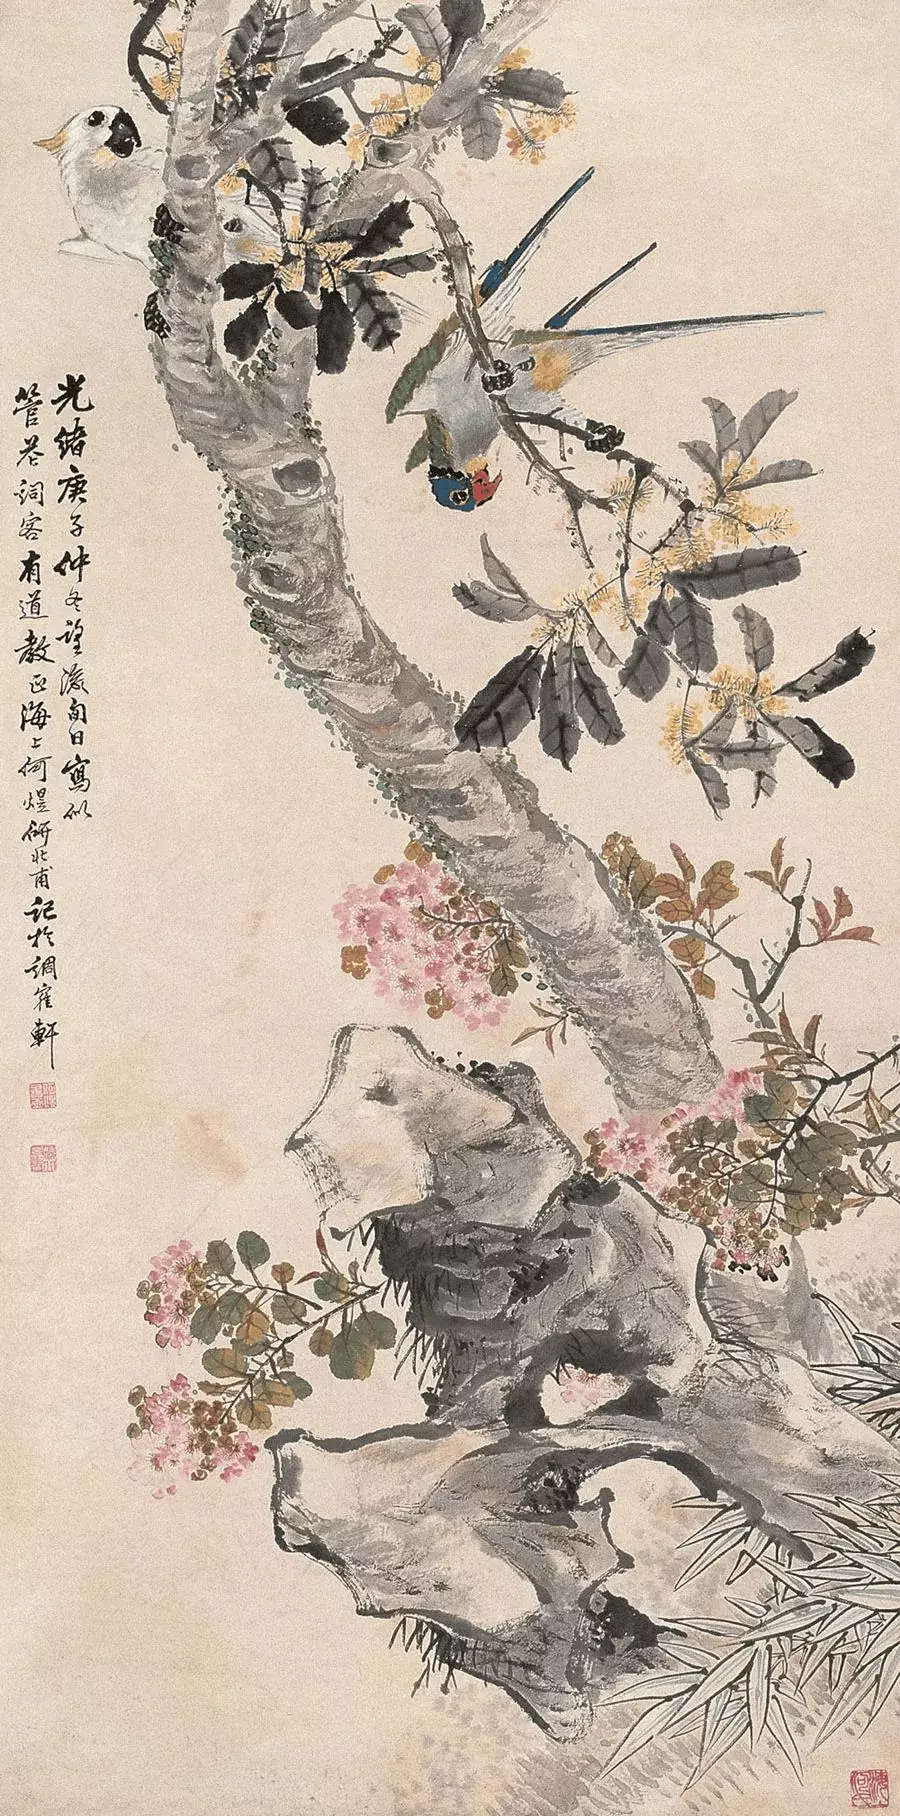 光緒庚子仲冬望後旬日寫似
管茮詞客有道教正海上何煜研北甫記於調隺軒